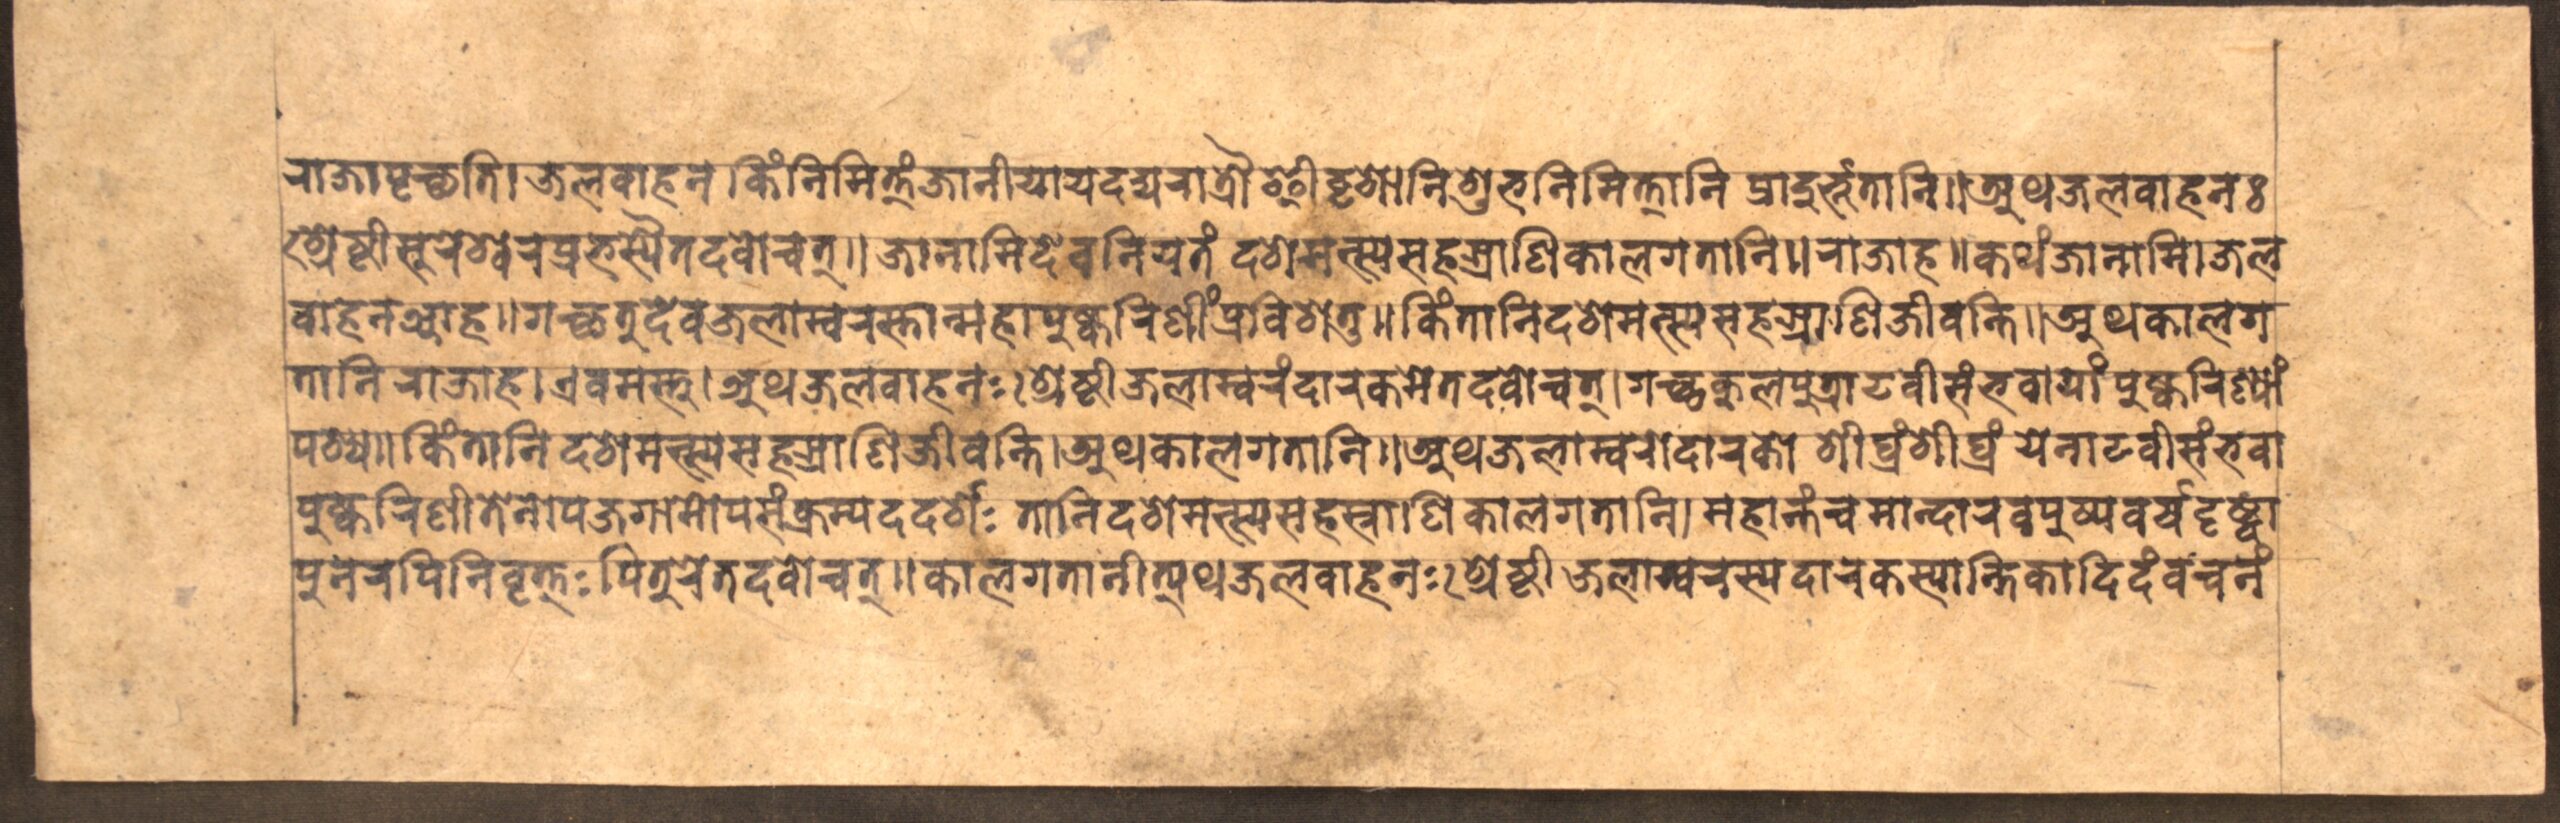 राजा पृच्छति। जलवाहन किं निमित्तं जानीया यदद्य रात्रौ ईदृशानि शुभनिमित्तानि प्रादुर्भूतानि॥ अथ जलवाहनः
श्रेष्ठी सुरेश्वरप्रभस्यैतदवोचत्॥ जानामि देव नियतं दशमत्स्यसहस्राणि कालगतानि॥ राजाह॥ कथं जानामि। जल
वाहन आह॥ गच्छतु देव जलाम्बरस्तान्महापुष्करिणीं प्रविशतु॥ किं तानि दशमत्स्यसहस्राणि जीवन्ति॥ अथ कालग
तानि राजाह। एवमस्तु। अथ जलवाहनः श्रेष्ठी जलाम्बरं दारकमेतदवोचत्। गच्छ कुलपुत्राटवीसंभवायां पुष्करिण्यां
पश्य॥ किं तानि दशमत्स्यसहस्राणि जीवन्ति। अथ कालगतानि॥ अथ जलाम्बरो दारको शीघ्रं शीघ्रं येनाटवीसंभवा
पुष्करिणी तेनोपजगामोपसंक्रम्य ददर्शः तानि दशमत्स्यसहस्राणि कालगतानि। महान्तं च मान्दारवपुष्पवर्ष दृष्ट्वा
पुनरपि निवृत्तः पितुरेतदवोचत्॥ कालगतानीत्यथ जलवाहनः श्रेष्ठी जलाम्बरस्य दारकस्यान्तिकादिदं वचनं